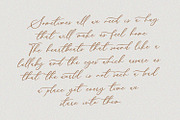 Sometimes all we need is a hug
that will make us feel home.
The heartbeats that sound like a
lullaby and the eyes which ensure us
that the world is not such a bad
a place get every time we
stare into them.